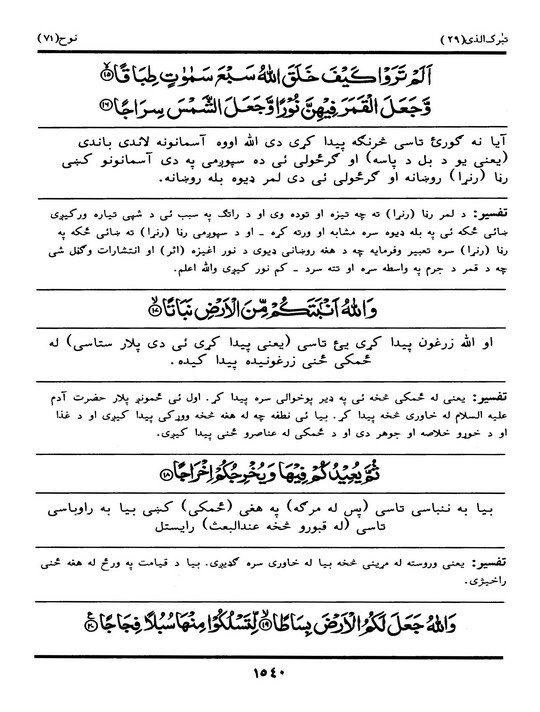 تبٰرك الذي (٢٩)
نوح (٧١)
اَلَمْ تَرَوْا كَيْفَ خَلَقَ اللّٰهُ سَبْعَ سَمٰوٰتٍ طِبَاقًا ۙ﴿١٥﴾
وَّجَعَلَ الْقَمَرَ فِيْهِنَّ نُوْرًا وَّجَعَلَ الشَّمْسَ سِرَاجًا ﴿١٦﴾
آيا نه گورئ تاسي څرنگه پيدا كړي دي الله اووه آسمانونه لاندي باندي
(يعني يو د بل د پاسه) او گرځولي ئي ده سپوږمي په دي آسمانونو كښي
رڼا (رنړا) روښانه او گرځولي ئي دى لمر ډيوه بله روښانه.
تفسير: د لمر رڼا (رنړا) ته چه تيزه او توده وي او د راتگ په سبب ئي د شپي تياره وركيږي
ښائي ځكه ئي په بله ډيوه سره مشابه او ورته كړه ـ او د سپوږمي رڼا (رنړا) ته ښائي ځكه په
رڼا (رنړا) سره تعبير وفرمايه چه د هغه روښاني ډيوي د نور اغيزه (اثر) او انتشارات وگڼل شي
چه د قمر د جرم په واسطه سره او تته سرد ـ كم نور كيږي والله اعلم.
وَاللّٰهُ اَنْۢبَتَكُمْ مِّنَ الْاَرْضِ نَبَاتًا ۙ﴿١٧﴾
او الله زرغون پيدا كړي يئ تاسي (يعني پيدا كړي ئي دي پلار ستاسي) له
ځمكي ځني زرغونيده پيدا كيده.
تفسير: يعني له ځمكي څخه ئي په ډير پوخوالي سره پيدا كړ. اول ئي ځمونږ پلار حضرت آدم
عليه السلام له خاوري څخه پيدا كړ. بيا ئي نطفه چه له هغه څخه ووړكي پيدا كيږي او د غذا
او د خوړو خلاصه او جوهر دى او د ځمكي له عناصرو ځني پيدا كيږي.
ثُمَّ يُعِيْدُكُمْ فِيْهَا وَيُخْرِجُكُمْ اِخْرَاجًا ﴿١٨﴾
بيا به ننباسي تاسي (پس له مرگه) په هغي (ځمكي) كښي بيا به راوباسي
تاسي (له قبورو څخه عندالبعث) رايستل
تفسير: يعني وروسته له مريني څخه بيا له خاوري سره گډيږي. بيا د قيامت په ورځ له هغه ځني
راخيژي.
وَاللّٰهُ جَعَلَ لَكُمُ الْاَرْضَ بِسَاطًا ۙ﴿١٩﴾ لِّتَسْلُكُوْا مِنْهَا سُبُلًا فِجَاجًا ﴿٢٠﴾ ع
١٥٤٠